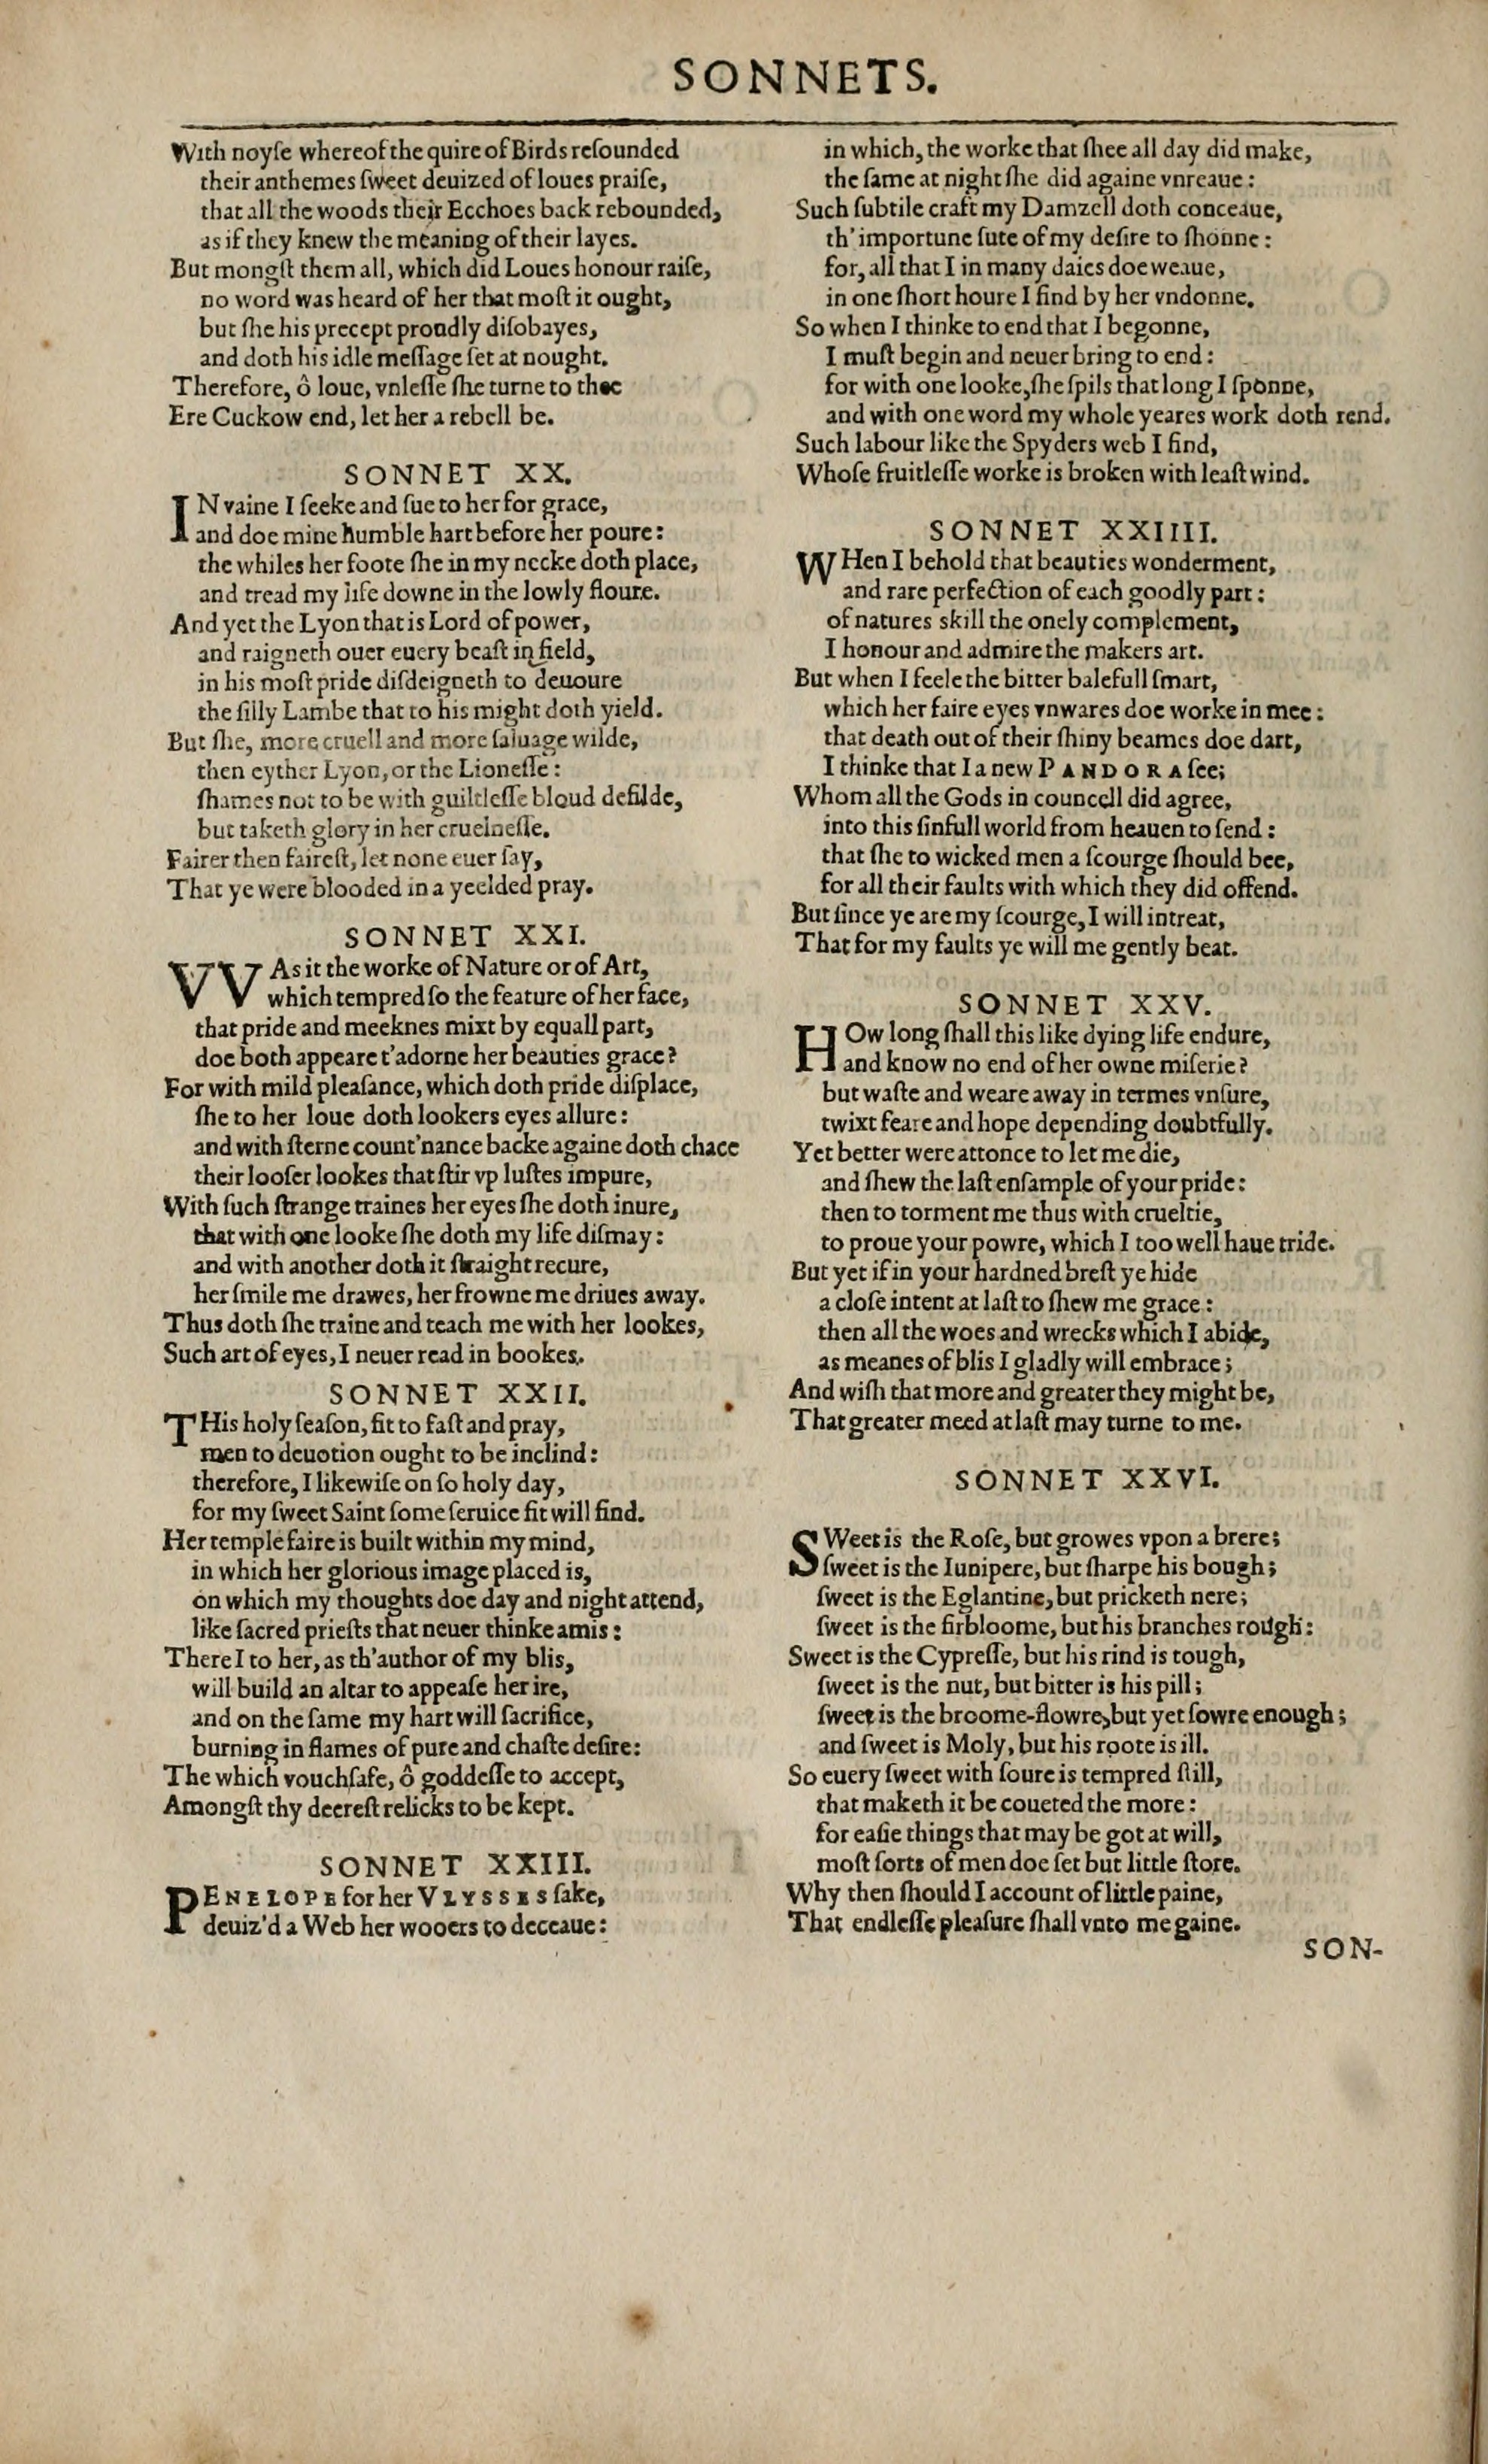 SONNETS.
With noyſe whereof the quire of Birds reſounded
their anthemes ſweet deuized of loues praiſe,
that all the woods their Ecchoes back rebounded,
as if they knew the meaning of their layes.
But mongſt them all, which did Loues honour raiſe,
no word was heard of her that moſt it ought,
but ſhe his precept proudly diſobayes,
and doth his idle meſſage ſet at nought.
Therefore, ô loue, vnleſſe ſhe turne to thee
Ere Cuckow end, let her a rebell be.
SONNET XX.
IN vaine I ſeeke and ſue to her for grace,
and doe mine humble hart before her poure:
the whiles her foote ſhe in my necke doth place,
and tread my life downe in the lowly floure.
And yet the Lyon that is Lord of power,
and raigneth ouer euery beaſt in field,
in his moſt pride diſdeigneth to deuoure
the ſilly Lambe that to his might doth yield.
But ſhe, more cruell and more ſaluage wilde,
then eyther Lyon, or the Lioneſſe:
ſhames not to be with guiltleſſe bloud defilde,
but taketh glory in her cruelneſſe.
Fairer then faireſt, let none euer ſay,
That ye were blooded in a yeelded pray.
SONNET XXI.
VVAs it the worke of Nature or of Art,
which tempred ſo the feature of her face,
that pride and meeknes mixt by equall part,
doe both appeare t'adorne her beauties grace?
For with mild pleaſance, which doth pride diſplace,
ſhe to her loue doth lookers eyes allure:
and with ſterne count'nance backe againe doth chace
their looſer lookes that ſtir vp luſtes impure,
With ſuch ſtrange traines her eyes ſhe doth inure,
that with one looke ſhe doth my life diſmay:
and with another doth it ſtraight recure,
her ſmile me drawes, her frowne me driues away.
Thus doth ſhe traine and teach me with her lookes,
Such art of eyes, I neuer read in bookes.
SONNET XXII.
THis holy ſeaſon, fit to faſt and pray,
men to deuotion ought to be inclind:
therefore, I likewiſe on ſo holy day,
for my ſweet Saint ſome ſeruice fit will find.
Her temple faire is built within my mind,
in which her glorious image placed is,
on which my thoughts doe day and night attend,
like ſacred prieſts that neuer thinke amis:
There I to her, as th'author of my blis,
will build an altar to appeaſe her ire,
and on the ſame my hart will ſacrifice,
burning in flames of pure and chaſte deſire:
The which vouchſafe, ô goddeſſe to accept,
Amongſt thy deereſt relicks to be kept.
SONNET XXIII.
PENELOPE for her VLYSSES ſake,
deuiz'd a Web her wooers to deceaue:
in which, the worke that ſhee all day did make,
the ſame at night ſhe did againe vnreaue:
Such ſubtile craft my Damzell doth conceaue,
th'importune ſute of my deſire to ſhonne:
for, all that I in many daies doe weaue,
in one ſhort houre I find by her vndonne.
So when I thinke to end that I begonne,
I muſt begin and neuer bring to end:
for with one looke, ſhe ſpils that long I ſponne,
and with one word my whole yeares work doth rend.
Such labour like the Spyders web I find,
Whoſe fruitleſſe worke is broken with leaſt wind.
SONNET XXIIII.
WHen I behold that beauties wonderment,
and rare perfection of each goodly part:
of natures skill the onely complement,
I honour and admire the makers art.
But when I feele the bitter balefull ſmart,
which her faire eyes vnwares doe worke in mee:
that death out of their ſhiny beames doe dart,
I thinke that I a new PANDORA ſee;
Whom all the Gods in councell did agree,
into this ſinfull world from heauen to ſend:
that ſhe to wicked men a ſcourge ſhould bee,
for all their faults with which they did offend.
But ſince ye are my ſcourge, I will intreat,
That for my faults ye will me gently beat.
SONNET XXV.
HOw long ſhall this like dying life endure,
and know no end of her owne miſerie?
but waſte and weare away in termes vnſure,
twixt feare and hope depending doubtfully.
Yet better were attonce to let me die,
and ſhew the laſt enſample of your pride:
then to torment me thus with crueltie,
to proue your powre, which I too well haue tride.
But yet if in your hardned breſt ye hide
a cloſe intent at laſt to ſhew me grace:
then all the woes and wrecks which I abide,
as meanes of blis I gladly will embrace;
And wiſh that more and greater they might be,
That greater meed at laſt may turne to me.
SONNET XXVI.
SWeet is the Roſe, but growes vpon a brere;
ſweet is the Iunipere, but ſharpe his bough;
ſweet is the Eglantine, but pricketh nere;
ſweet is the firbloome, but his branches rough:
Sweet is the Cypreſſe, but his rind is tough,
ſweet is the nut, but bitter is his pill;
ſweet is the broome-flowre, but yet ſowre enough;
and ſweet is Moly, but his roote is ill.
So euery ſweet with ſoure is tempred ſtill,
that maketh it be coueted the more:
for eaſie things that may be got at will,
moſt ſorts of men doe ſet but little ſtore.
Why then ſhould I account of little paine,
That endleſſe pleaſure ſhall vnto me gaine.
SON-